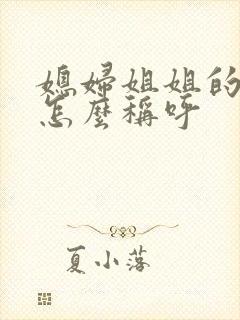 媳婦姐姐的
怎麼稱呼
夏小落